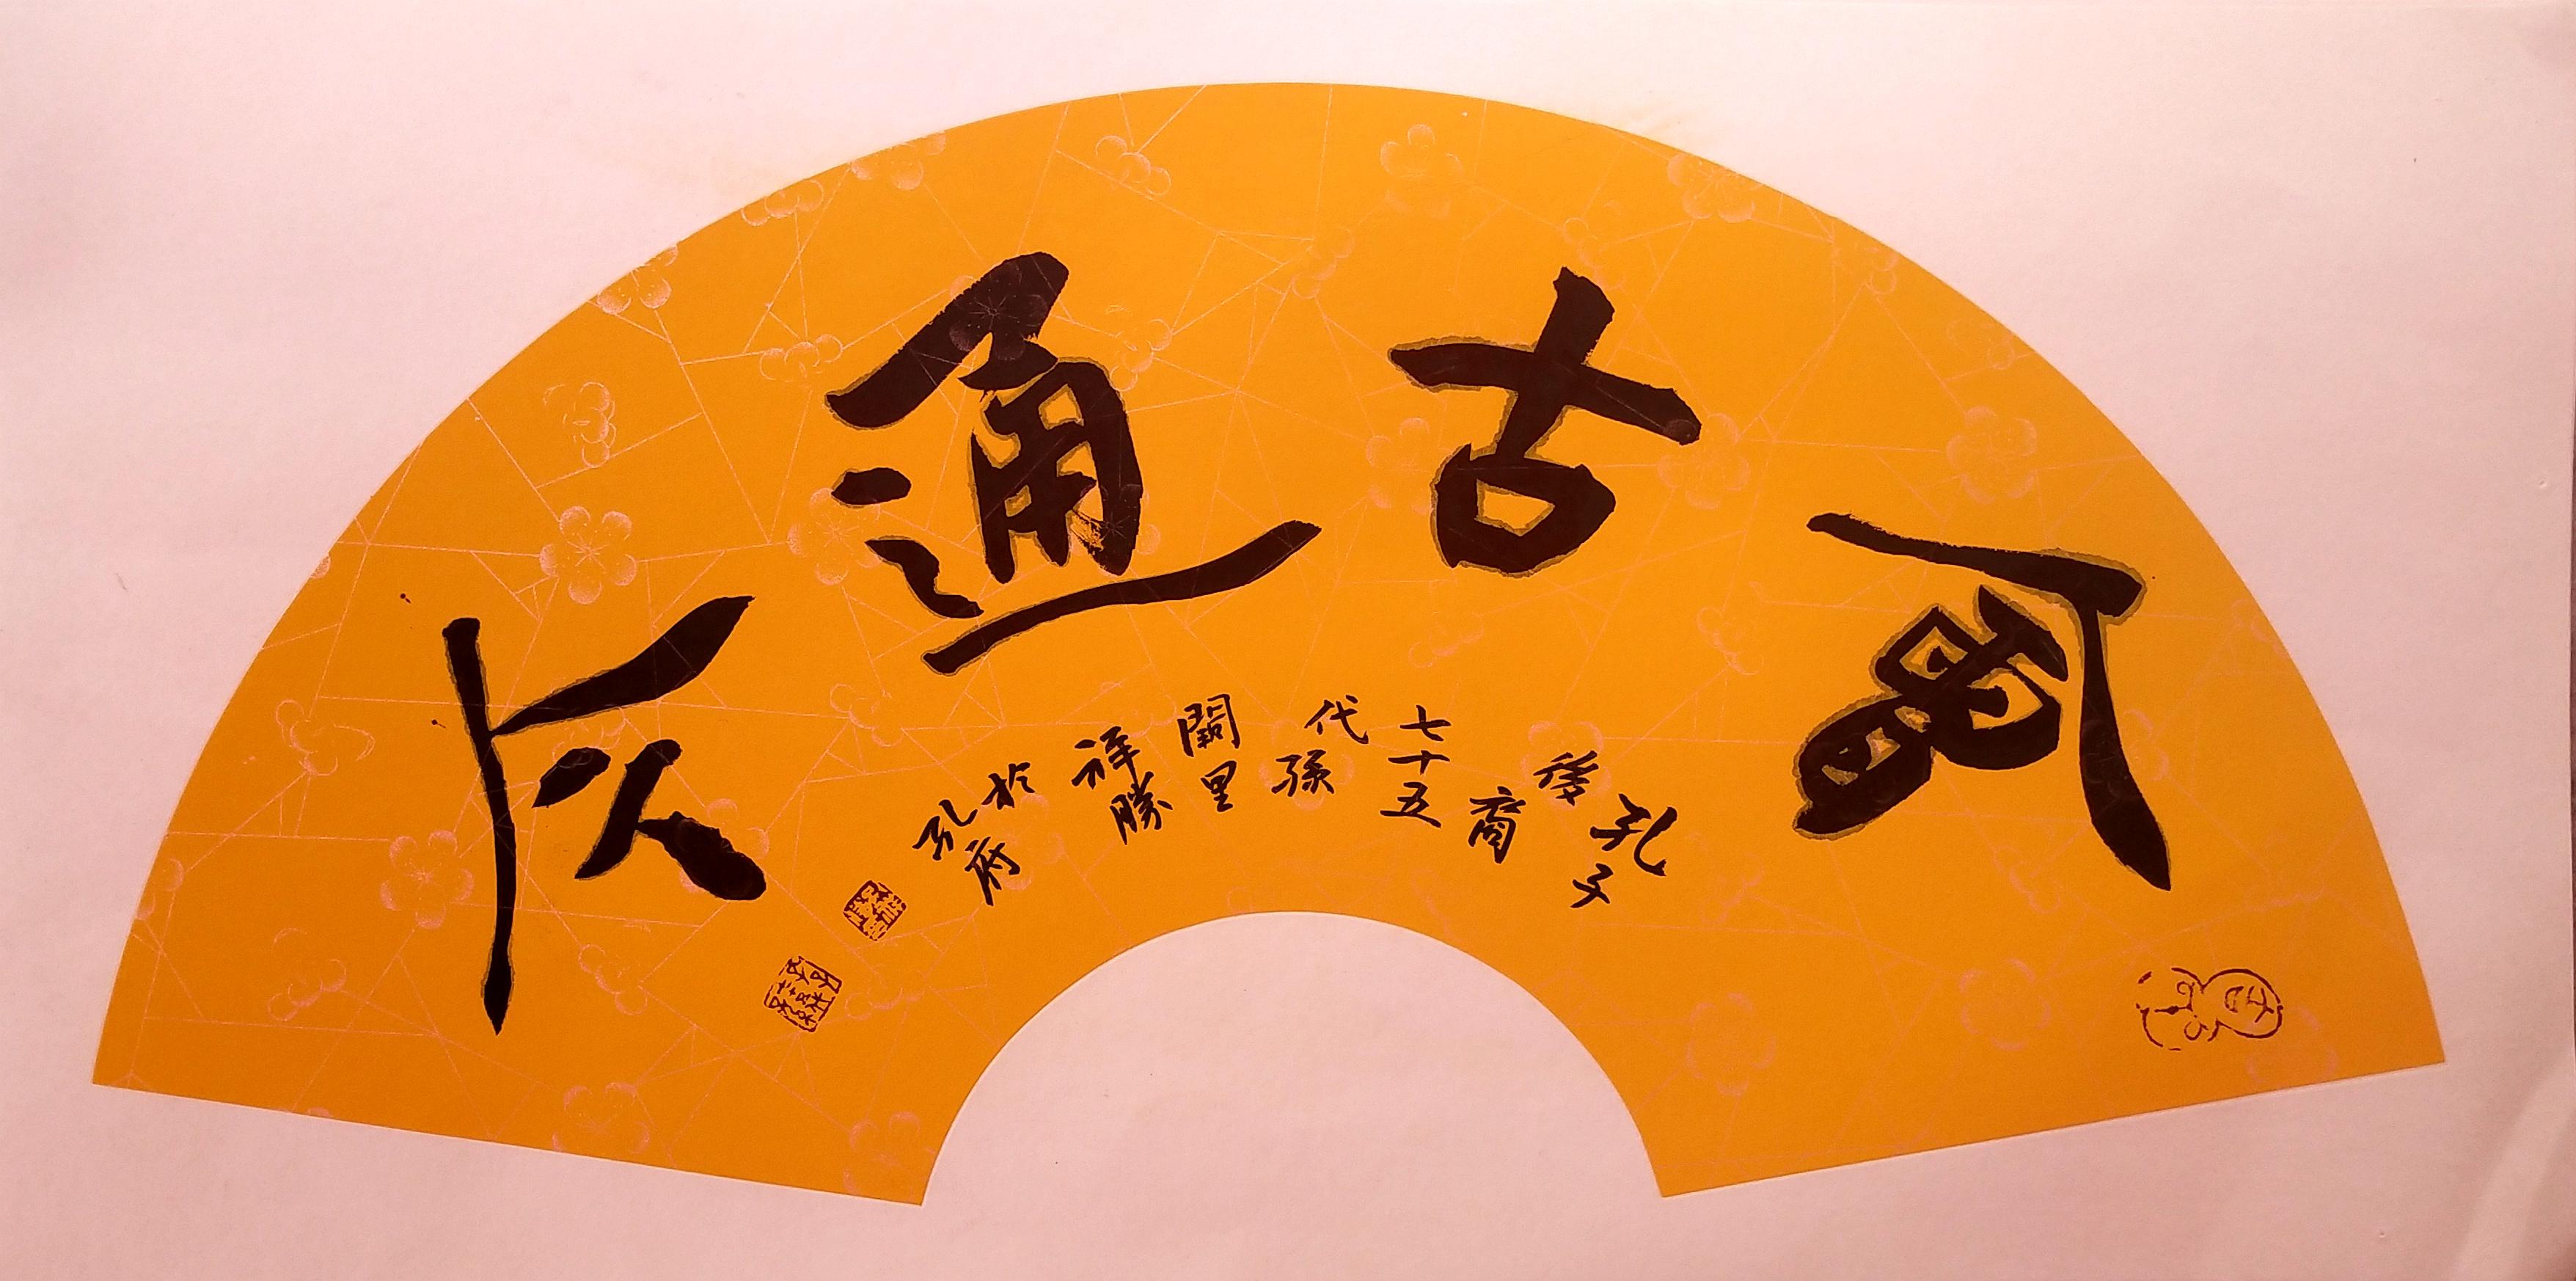 會古通今
孔子
後裔
七十五
代孫
闕里
祥勝
於
孔府